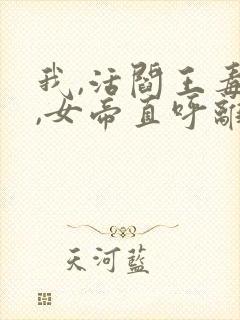 我,活阎王毒
,女帝直呼離
天河藍